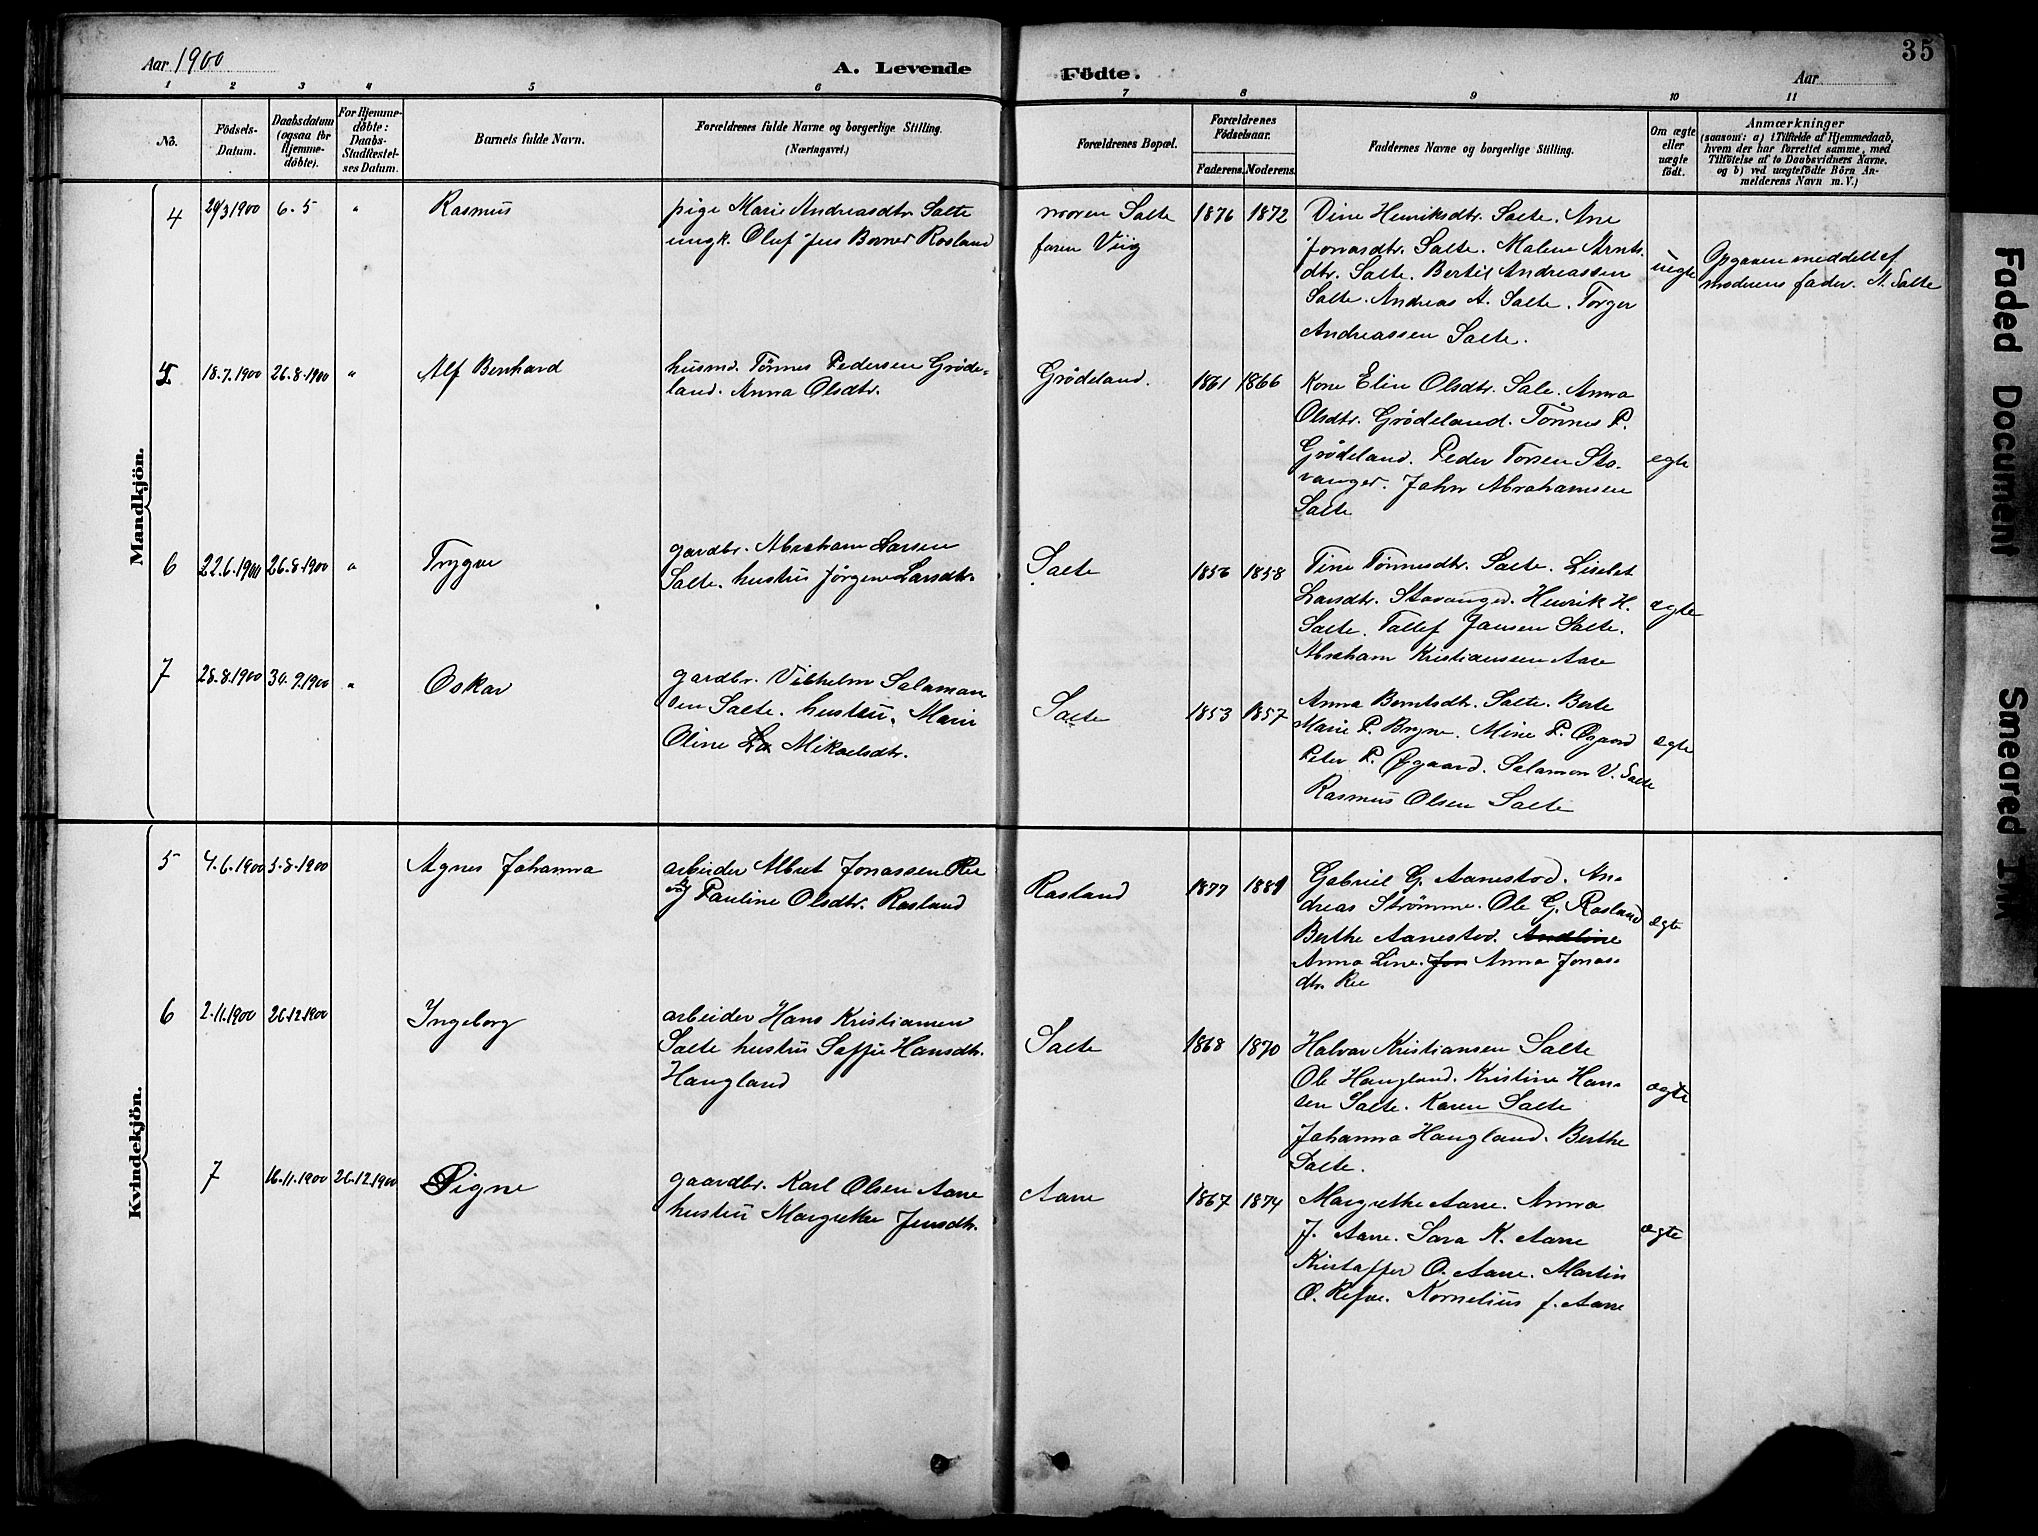 35
Aar 1900
A. Levende Födte.
Aar
1 2 3 4 5 6 7 8 9 10 11
No.
Födsels-Datum.
Daabsdatum (ogsaa for Hjemmedöbte).
For Hjemmedöbte: Daabs-Stadfestelses Datum.
Barnets fulde Navn.
Forældrenes fulde Navne og borgerlige Stilling.
(Næringsvei.)
Forældrenes Bopæl.
Forældrenes Födselsaar.
Faderens. Moderens.
Faddernes Navne og borgerlige Stilling.
Om ægte eller uægte födt.
Anmærkninger
(saasom: a) i Tilfælde af Hjemmedaab, hvem der har forrettet samme, med Tilföielse af to Daabsvidners Navne. og b) ved uægtefödte Börn Anmelderens Navn m.V.)
Mandkjön.
4 29/3 1900 6.5 " Rasmus
pige Marie Andreasdtr. Salte
ungk. Oluf Jens Rosland
moren Salte
faren Viig
1876 1872
Dine Henriksdtr. Salte. Ane
Jonasdtr. Salte. Malene Arnts-
dtr. Salte. Bertil Andreassen
Salte. Andreas A. Salte. Torger
Andreassen Salte.
uegte
Opgaven meddelt af
moderens fader. A. Salte
5 18.7.1900 26.8.1900 " Alf Bernhard
husmd. Tønnes Pedersen Gröde-
land. Anna Olsdtr.
Grödeland.
1861 1866
Kone Elin Olsdtr. Sale. Anna
Olsdtr. Grödeland. Tönnes P.
Grödeland. Peder Torsen Sta-
vanger. John Abrahamsen
Salte
egte
6 22.6.1900 26.8.1900 " Trygve
gardbr. Abraham Larsen
Salte. hustru Jørgine Larsdtr.
Salte
1856 1858
Tine Tönnesdtr. Salte. Liselet
Larsdtr. Stavanger. Henrik H.
Salte. Tallef Jansen Salte.
Abraham Kristiansen Aare
ægte
7 28.8.1900 30.9.1900 " Oskar
gardbr. Vilhelm Salamon
sen Salte. hustru. Marie
Oline Mikaelsdtr.
Salte
1853 1857
Anna Berntsdtr. Salte. Berte
Marie P. Bryne. Mine P. Øgaard
Peter P. Øgaard. Salamon V. Salte
Rasmus Olsen Salte
ægte
Kvindekjön.
5 4.6.1900 5.8.1900 Agnes Johanna
arbeider Albret Jonassen Ree
og Pauline Olsdtr. Rosland
Rosland
1877 1881
Gabriel G. Aanestad. An-
dreas Strömme. Ole G. Rosland
Berthe Aanestad. Andline
Anna Line. Jon Anna Jonas-
dtr. Ree
ægte
6 2.11.1900 26.12.1900 Ingeborg
arbeider Hans Kristiansen
Salte hustru Saffie Hansdtr.
Haugland
Salte
1868 1870
Halvar Kristiansen Salte
Ole Haugland. Kristine Han-
sen Salte. Karen Salte
Johanna Haugland. Berthe
Salte.
ægte
7 16.11.1900 26.12.1900 Signe
gaardbr. Karl Olsen Aarre
hustru Margrethe Jensdtr.
Aarre
1867 1874
Margrethe Aarre. Anna
J. Aarre. Sara K. Aarre
Kristaffer O. Aarre. Martin
O. Refve. Kornelius J. Aarre
ægte
Faded Document
Smeared Ink